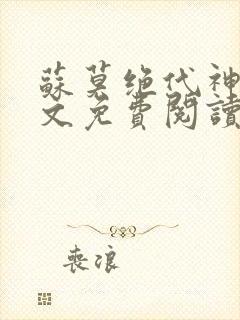 蘇莫绝代神
文免費閱讀
喪浪